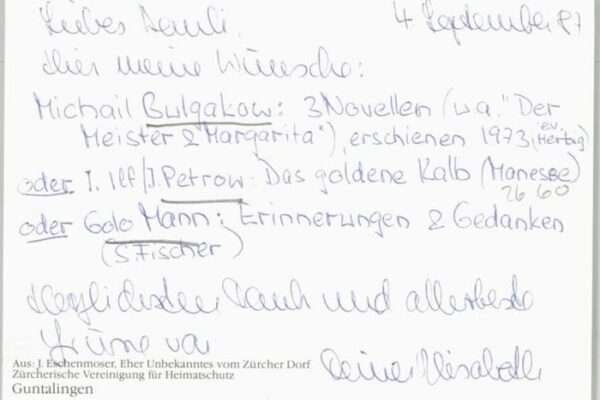 Liebes Pauli, 4. September 87
Hier meine Wünsche:
Michail Bulgakow: 3 Novellen (u.a. "Der
Meister & Margarita"), erschienen 1973, (ev. Hertag)
oder I. Ilf/J. Petrow: Das goldene Kalb (Manesse)
26 60
oder Golo Mann: Erinnerungen & Gedanken
(S. Fischer)
Herzlichsten Dank und allerbeste
Grüsse von
Deiner Elisabeth
Aus: J. Eschenmoser, Eher Unbekanntes vom Zürcher Dorf
Zürcherische Vereinigung für Heimatschutz
Guntalingen